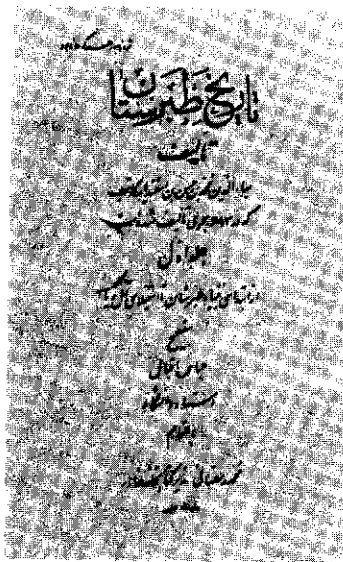 تاریخ طبرستان
تألیف
بهاء الدین محمد بن حسن بن اسفندیار کاتب
که در هجری تألیف شده است
جلد اول
از ابتدای بنیاد طبرستان تا استیلای آل زیار
تصحیح
عباس اقبال
استاد دانشگاه
باهتمام
محمد رمضانی